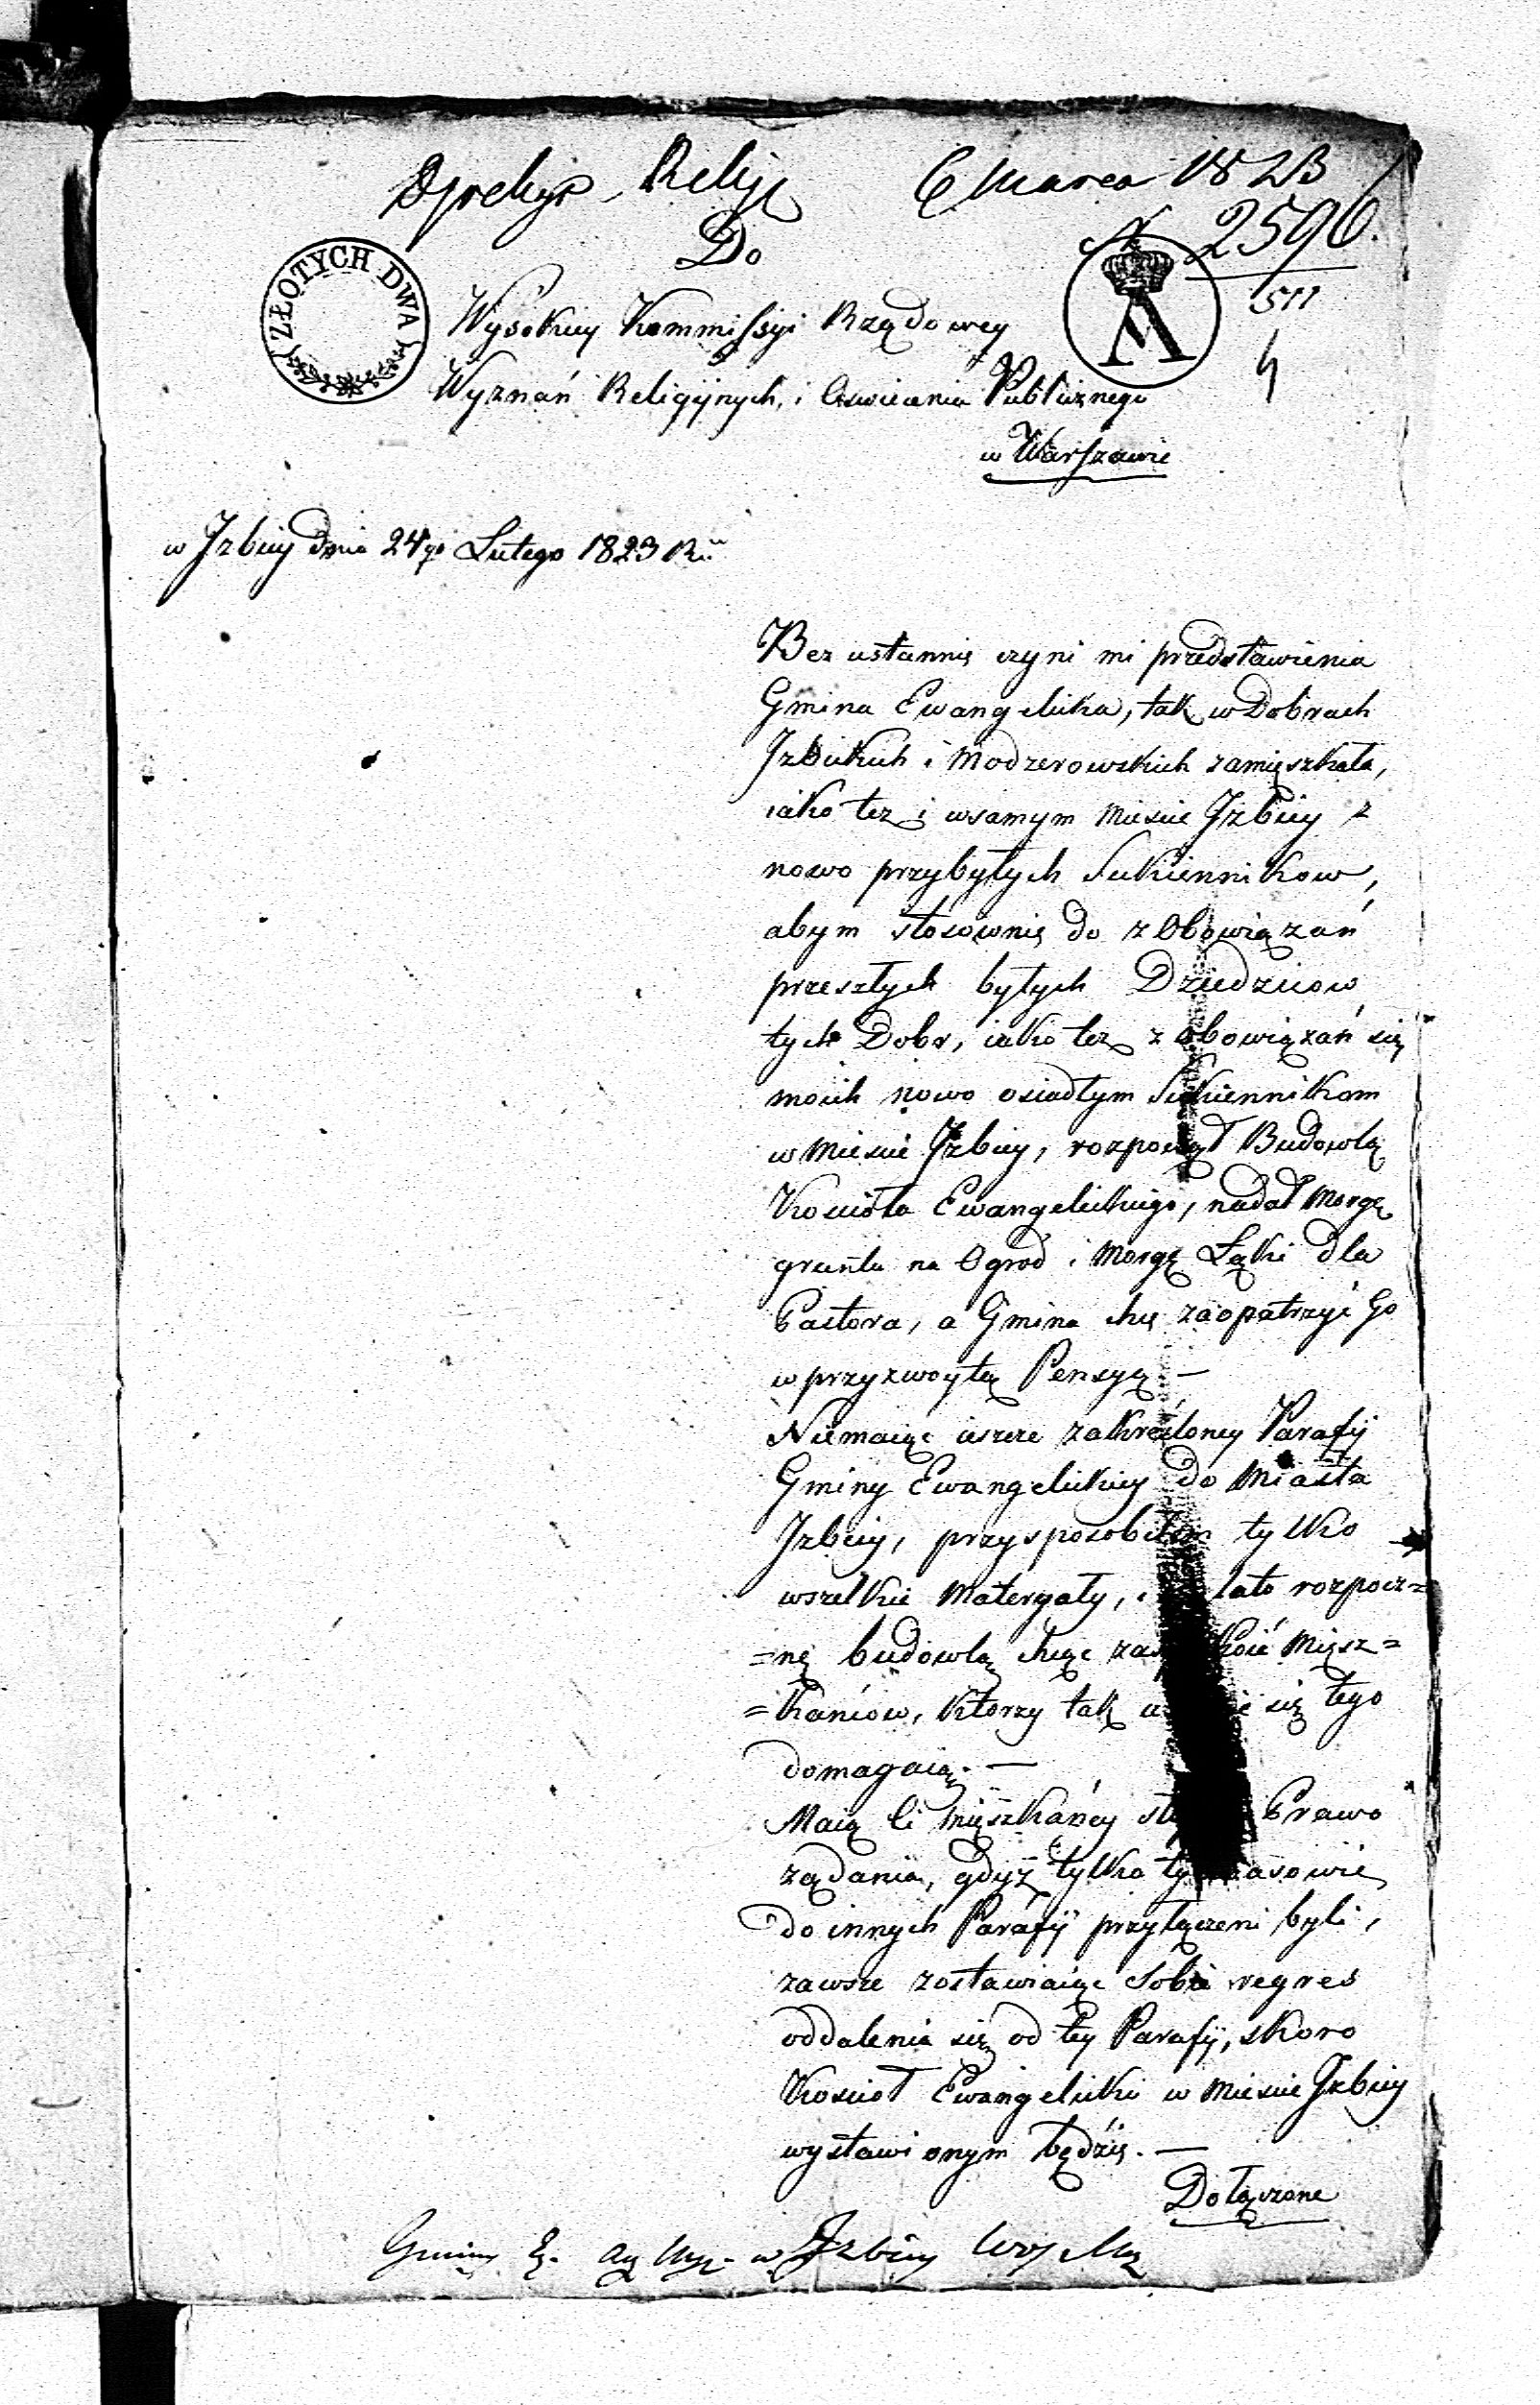 Relig 6 Marca 1823
N 2596.
Do
511
ZŁOTYCH DWA
Wysokiey Kommissyi Rządowey
4
Wyznań Religiynych, i Oswiecenia Publicznego
w Warszawie
w Izbicy dnia 24go Lutego 1823 R.
Bez ustannię czyni mi przedstawienia
Gmina Ewangelicka, tak w Dobrach
Izbickich i Modzerowskich zamięszkała,
iako też i w samym Miescie Izbicy z
nowo przybyłych Sukiennikow,
abym stosownię do zobowiązań
przeszłych byłych Dziedzicow
tych Dobr, iako też zobowiązań się
moich nowo osiadłym Sukiennikom
w Miescie Izbicy, rozpoczął Budowlą
Kościoła Ewangelickiego, nadał Morgę
gruntu na Ogrod i Morgę Łąki dla
Pastora, a Gmina chę zaopatrzyć Go
w przyzwoytą Pensyą —
Niemaiąc ieszcze zakreśloney Parafij
Gminy Ewangelickiey do Miasta
Izbicy, przysposobiłem tylko
wszelkie Materyały, i lato rozpocz=
=nę budowlą chcąc Mięsz=
=kańcow, ktorzy tak się tego
domagaią. —
Maią ci Mięszkańcy Prawo
żądania, gdyż tylko tymczasowie
do innych Parafij przyłączeni byli,
zawsze zostawiaiąc Sobie regres
oddalenia się od tey Parafij, skoro
Kościoł Ewangelicki w Miescie Izbicy
wystawionym będzię. —
Dołączone
Gminy w Izbicy Woj Maz